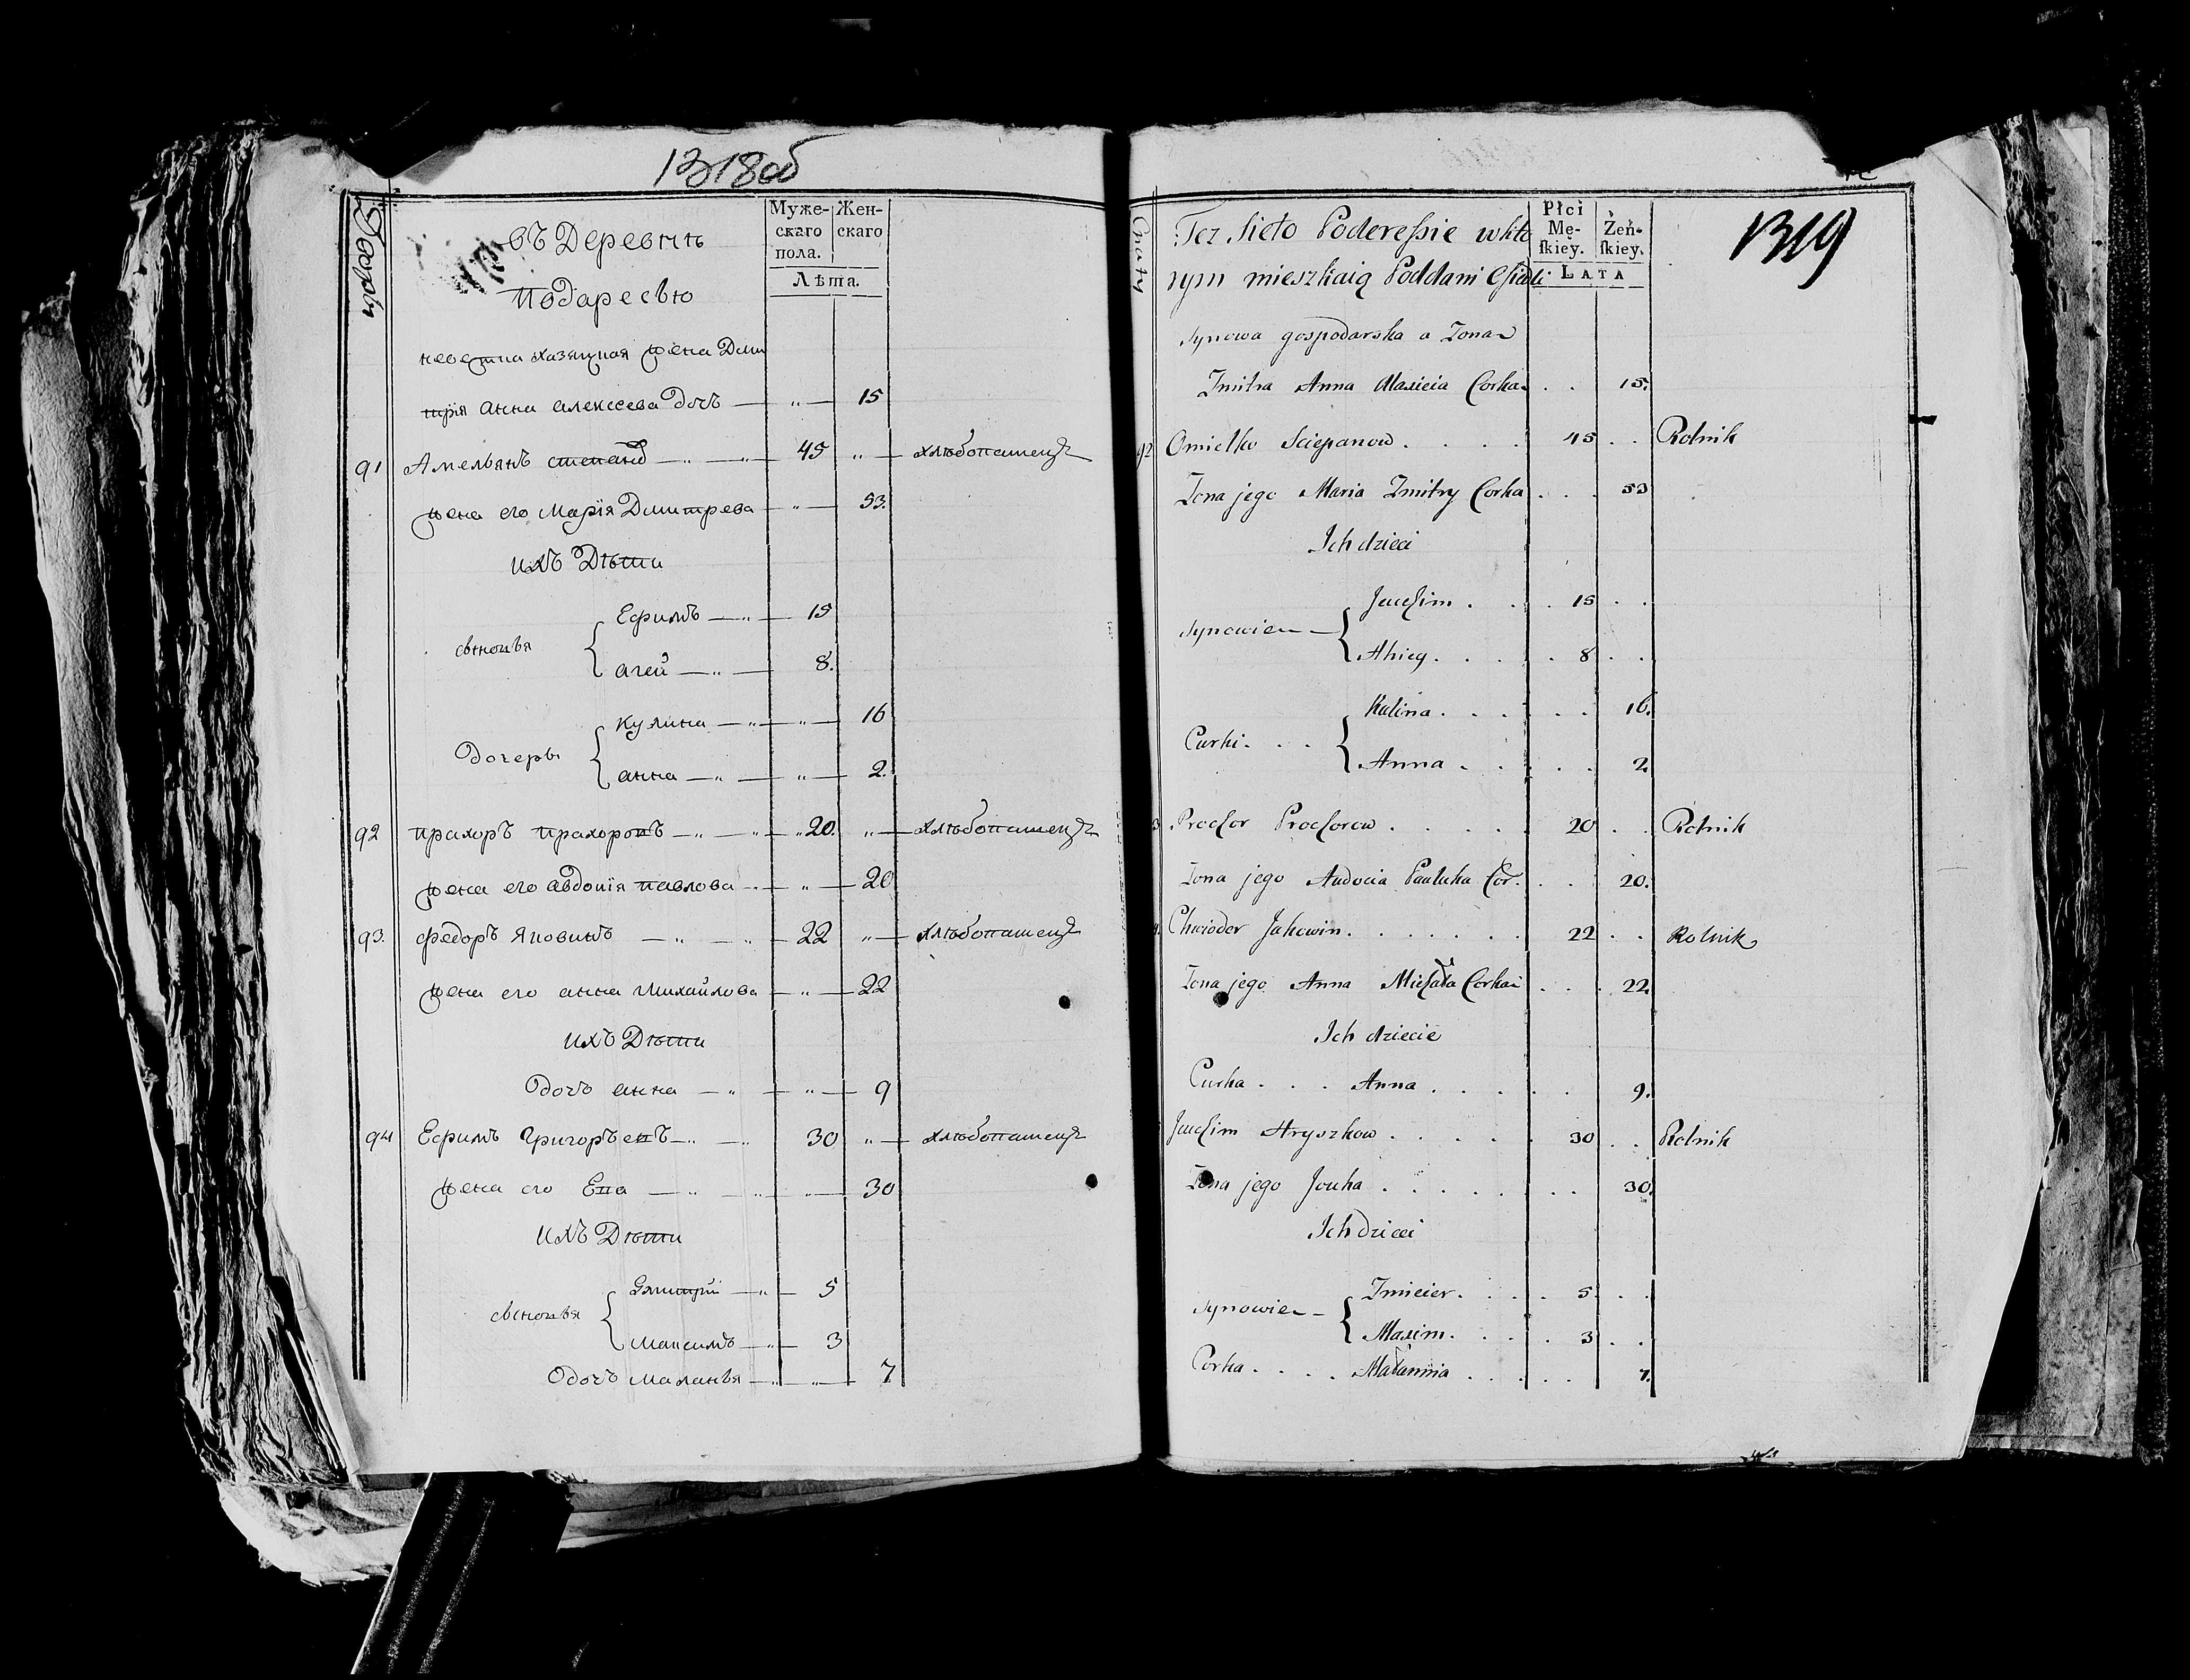 1318об
Дворы
въ Деревнѣ
Подаресью
Муже-
скаго
пола.
Жен-
скаго
Лѣта.
невестка хазяцкая жена Дми
трія анна алексеева дочъ — „ — 15
91 Амельянъ степановъ — „ — „ — 45 „ — хлѣбопашецъ
жена его Марія Дмитрева — „ — 53.
ихъ Дѣти
сыновья
Ефимъ — „ — 15
агей — „ — 8.
Дочеры
кулина — „ — „ — 16
анна — „ — „ — 2.
92 прахоръ прахоровъ — „ — „ — 20. „ — хлѣбопашецъ
жена его авдокія павлова — „ — 20
93. федоръ яковинъ — „ — „ — 22 „ — хлѣбопашецъ
жена его анна михайлова — „ — 22
ихъ Дѣти
Дочъ анна — „ — „ — 9
94 Ефимъ Григоръевъ — „ — 30 „ — хлѣбопашецъ
жена его Ева — „ — „ — 30
ихъ Дѣти
сыновья
Дмитрій — „ — 5
максимъ — „ — 3
Дочъ маланья — „ — „ — 7
1319
Chaty
Tez Sieło Poderessie w któ
rym mieszkaią Poddani Osiadli
Płci
Mę-
ſkiey.
Żeń-
ſkiey.
LATA
Synowa gospodarska a Zona
Zmitra Anna Alaxieia Corka . . 15.
92 Omielko Sciepanow . . . . 45 . . Rolnik
Zona jego Maria Zmitry Corka . . . 53
Ich dzieci
Synowie
Jauchim . . . 15 . .
Ahiey . . . . 8 . .
Curki . . .
Kulina . . . . . 16.
Anna . . . . . 2
3 Prochor Prochorow . . . . . 20 . . Rolnik
Zona jego Audocia Pauluka Cor. . . . 20.
Chwiodor Jakowin . . . . . . 22 . . Rolnik
Zona jego Anna Michała Corka . . . 22
Ich dziecie
Curka . . . Anna . . . . 9.
Jauchim Hryszkow . . . . . 30 . . Rolnik
Zona jego Jouka . . . . . . . . 30.
Ich dzieci
Synowie
Zmicier . . . . 5 . .
Maxim . . . . 3 . .
Corka . . . . Małannia . . . . . 7.